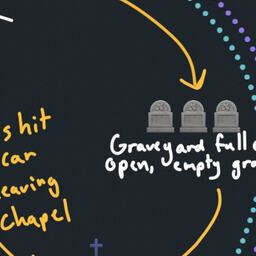 s hit
car
leaving
chapel
Graveyard full o
open, empty gra